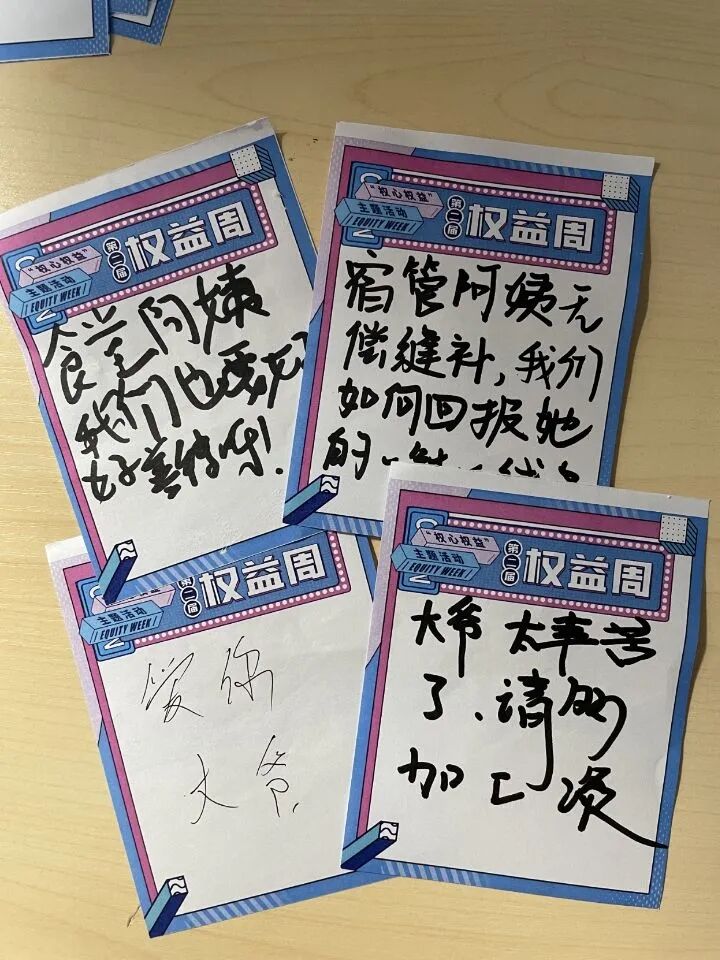 “权心权益”
主题活动
EQUITY WEEK
第二届
权益周
食堂阿姨
我们也要
好善待呀!
“权心权益”
主题活动
EQUITY WEEK
第二届
权益周
宿管阿姨无
偿缝补,我们
如何回报她
的
主题活动
EQUITY WEEK
第二届
权益周
爱你
大爷
“权心权益”
主题活动
EQUITY WEEK
第二届
权益周
大爷太辛苦
了、请
加工资